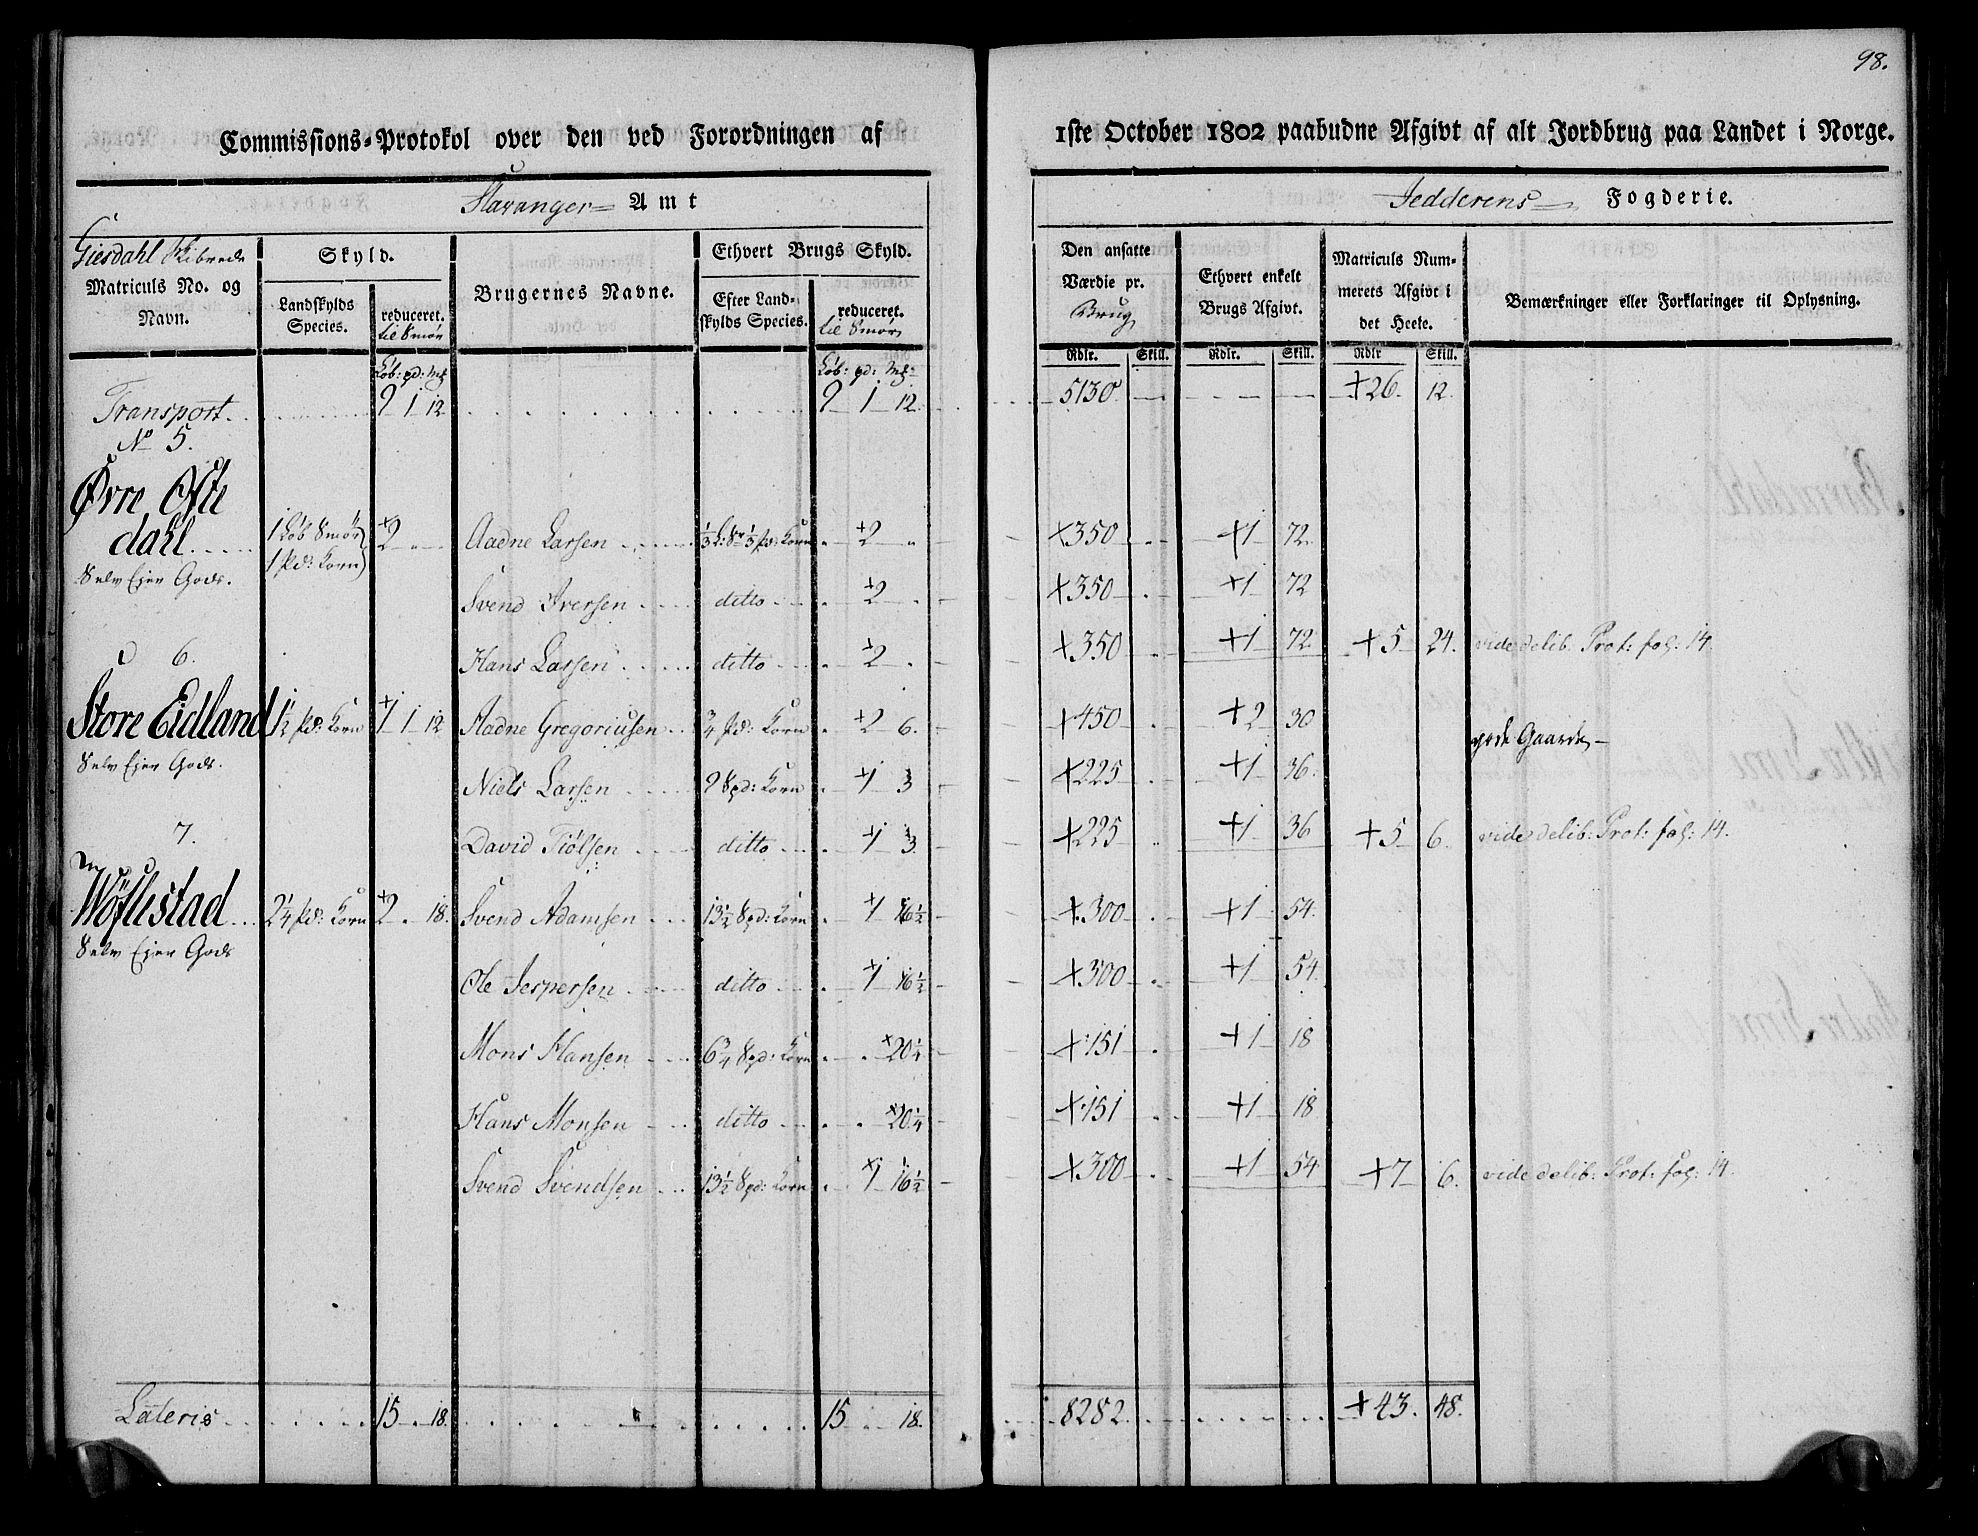 98.
Commissions-Protokol over den ved Forordningen af 1ste October 1802 paabudne Afgivt af alt Jordbrug paa Landet i Norge.
Stavanger Amt Jedderens Fogderie.
Giesdahl Skibrede
Matriculs No. og Navn.
Skyld.
Landskylds Species.
reduceret. til Smør
Brugernes Navne.
Ethvert Brugs Skyld.
Efter Landskylds Species.
reduceret. til Smør
Den ansatte Værdie pr. Brug
Ethvert enkelt Brugs Afgivt.
Matriculs Nummerets Afgivt i det Heele.
Bemærkninger eller Forklaringer til Oplysning.
Løb: pd: Mk Løb: pd: Mk: Rdlr. Skill. Rdlr. Skill. Rdlr Skill.
Transport 9 1 12 9 1 12 5130 +26 12
No 5.
Øvre Ofte
dahl 1 Løb Smør +2 Aadne Larsen 1/3 L: Sr 1/3 pd: Korn +2 +350 +1 72
1 pd: Korn
Selv Ejer Gods. Svend Iversen ditto +2 +350 +1 72
6. Hans Larsen ditto +2 +350 +1 72 +5 24. vide delib. Prot: fol: 14.
Store Eidland 1 1/2 pd: Korn +1 1 12 Aadne Gregoriussen 3/4 pd: Korn +2 6. +450 +2 30
gode Gaarde
Selv Ejer Gods. Niels Larsen 9 Spd: Korn +1 3 +225 +1 36.
7. David Tiølsen ditto +1 3. +225 +1 36 +5 6. vide delib: Prot: fol: 14.
Wøflestad 2 1/4 pd: Korn +2 18. Svend Adamsen 13 1/2 Spd: Korn +1 16 1/2 +300 +1 54.
Selv Ejer Gods
Ole Jespersen ditto +1 16 1/2 +300 +1 54.
Mons Hansen 6 3/4 Spd: Korn +20 1/4 +151 +1 18
Hans Monsen ditto +20 1/4 +151 +1 18
Svend Svendsen 13 1/2 Spd: Korn +1 16 1/2 +300 +1 54 +7 6. vide delib: Prot: fol: 14.
Lateris 15 18. 15 18. 8282 +43. 48.